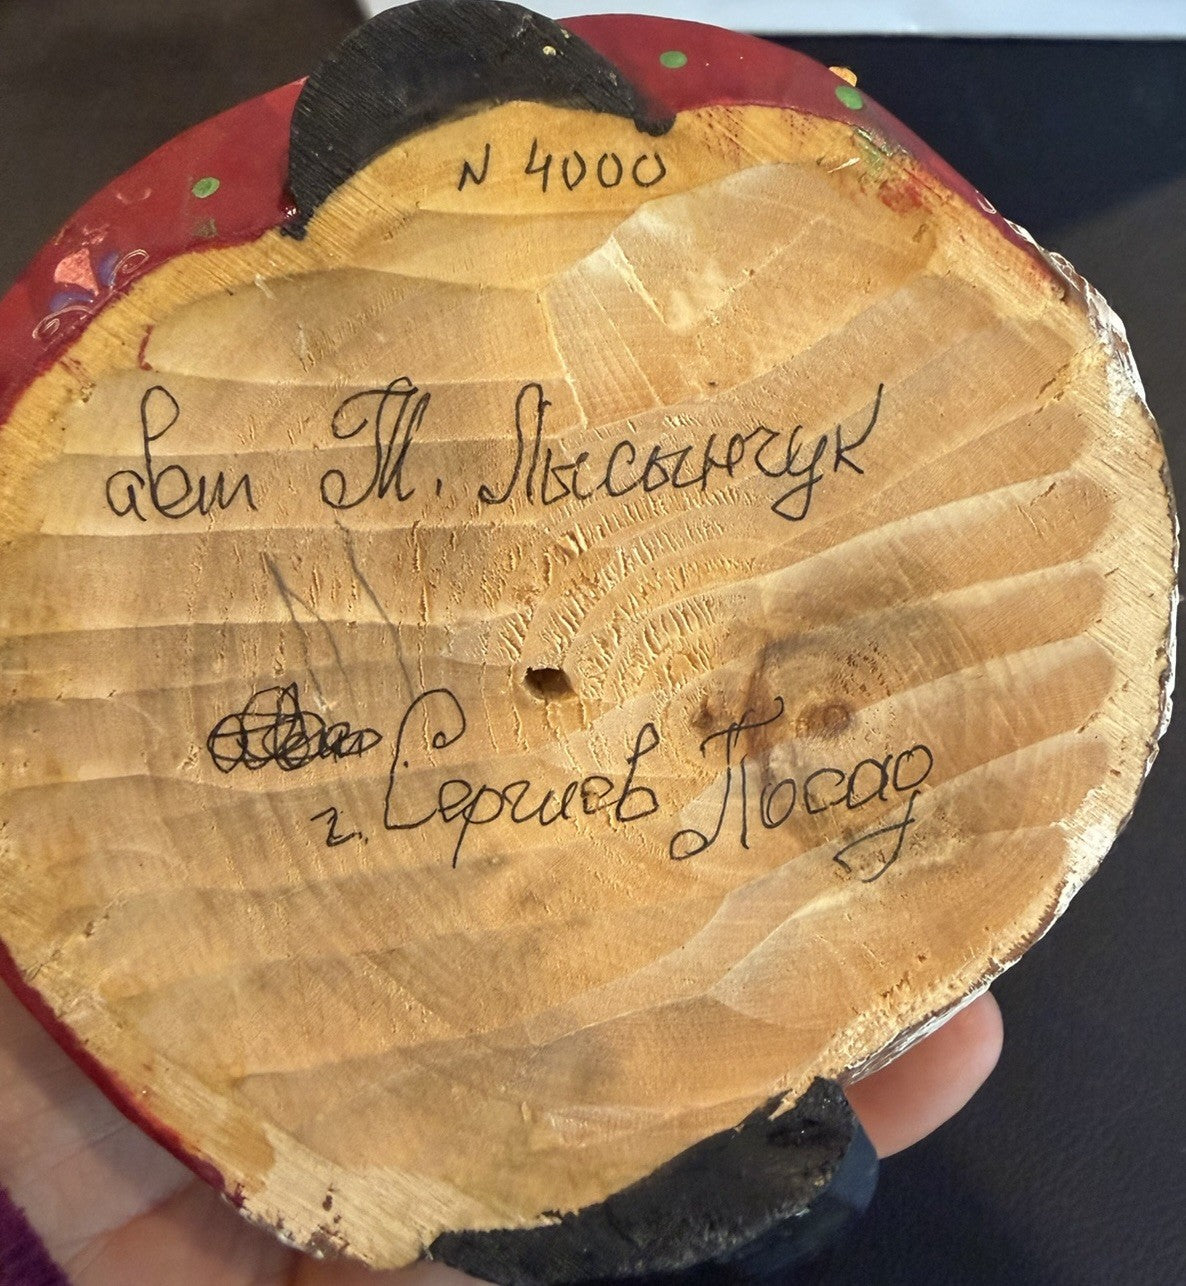 N 4000
авт Т. Лысынчук
г. Сергиев Посад